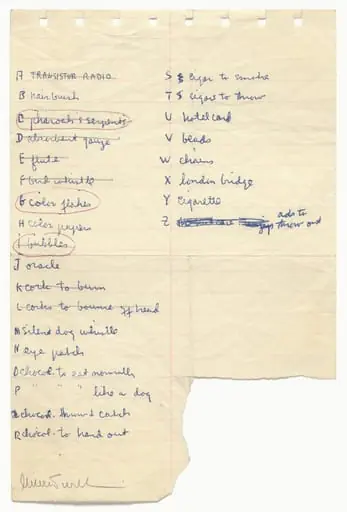 A TRANSISTOR RADIO
B hairbrush
C pharoahs & serpents
D absorbent gauze
E flute
F bird whistle
G color flakes
H color papers
I bubbles
J oracle
K cork to burn
L corks to bounce off head
M silent dog whistle
N eye patch
O chocol. to eat normally
P " " " like a dog
Q chocol. throw & catch
R chocol. to hand out
S cigar to smoke
T 5 cigars to throw
U hotel card
V beads
W chains
X london bridge
Y cigarette
Z ads to
throw out